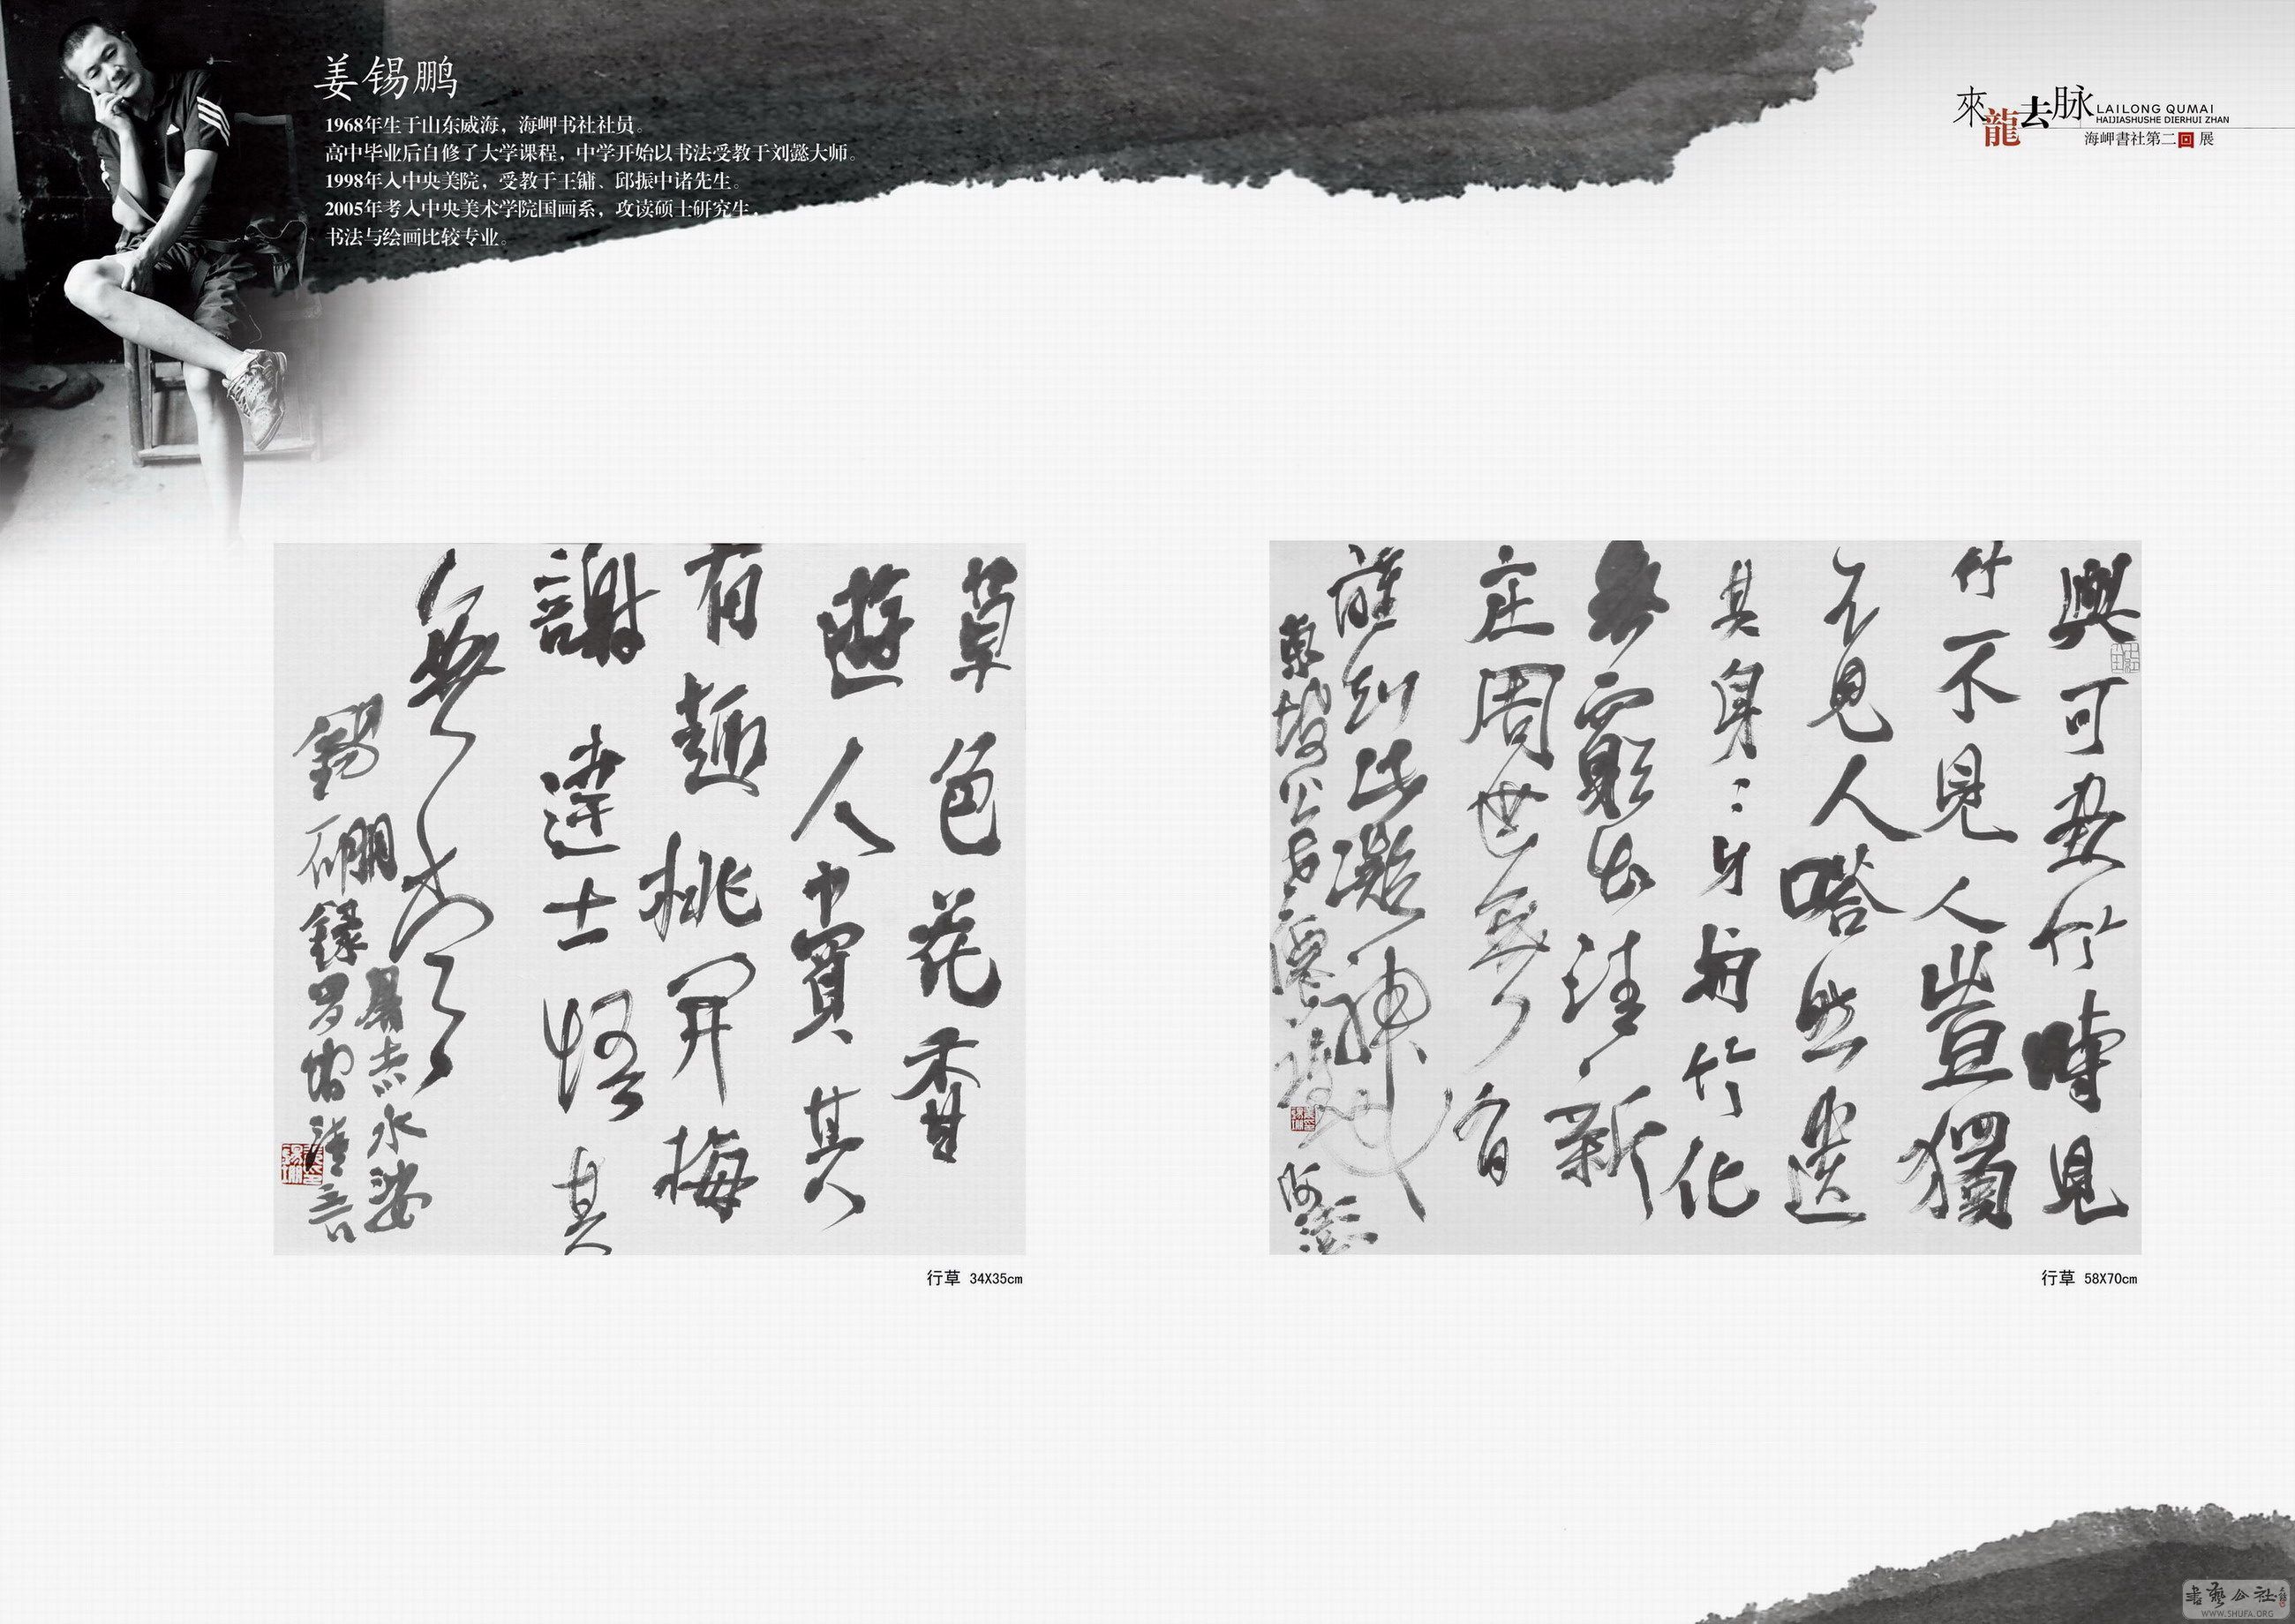 姜锡鹏
1968年生于山东威海，海岬书社社员。
高中毕业后自修了大学课程，中学开始以书法受教于刘懿大师。
1998年入中央美院，受教于王镛、邱振中诸先生。
2005年考入中央美术学院国画系，攻读硕士研究生，
书法与绘画比较专业。
來龍去脉
LAILONG QUMAI
HAIJIASHUSHE DIERHUI ZHAN
海岬書社第二回展
與可畫竹時見
竹不見人豈獨
不見人嗒然遺
其身：身與竹化
無窮出清新
庄周世無有
誰知此凝神
東坡公
草色花香
遊人賞其
有趣桃開梅
謝達士悟其
無常
錫硼錄屠赤水娑
羅館清言
行草 34X35cm
行草 58X70cm
書藝公社
WWW.SHUFA.ORG